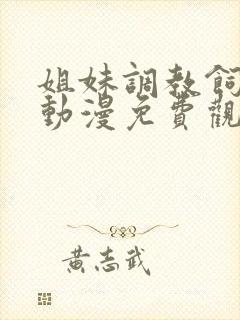 姐妹調教飼
動漫免費觀
黃志武